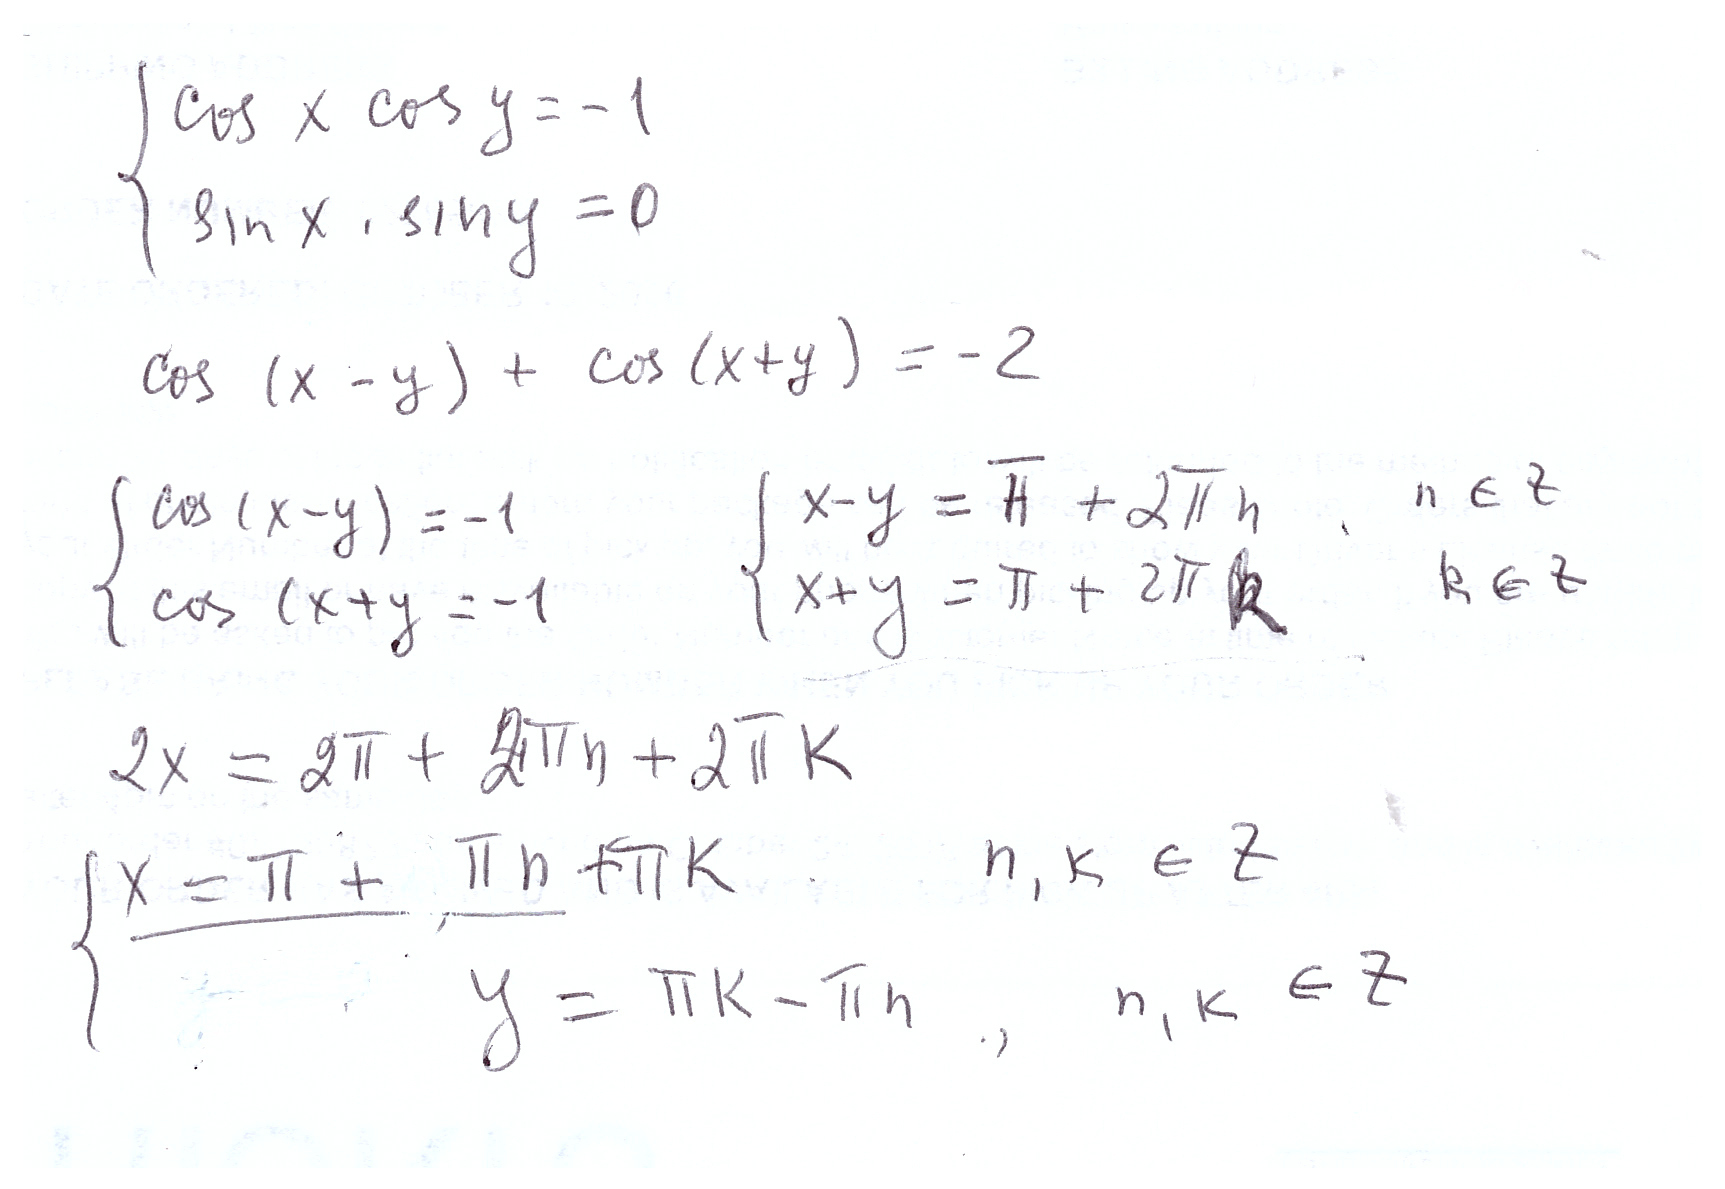 cos x cos y = -1
sin x . sin y = 0
cos (x - y) + cos (x+y) = -2
cos (x-y) = -1 x-y = π + 2πn, n ∈ Z
cos (x+y = -1 x+y = π + 2πk k ∈ Z
2x = 2π + 2πn + 2πk
x = π + πn + πk n, k ∈ Z
y = πk - πn, n, k ∈ Z